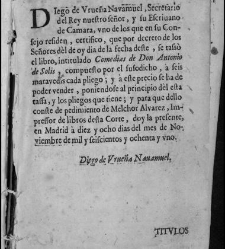 DIego de Vrueña Navamuel, Secretario
del Rey nuestro señor, y su Escrivano
de Camara, vno de los que en su Con-
sejo residen, certifico, que por decreto de los
Señores dèl de oy dia de la fecha deste, se tassò
el libro, intitulado Comedias de Don Antonio
de Solis, compuesto por el susodicho, à seis
maravedis cada pliego; y à este precio se ha de
poder vender, poniendose al principio del esta
tassa, y los pliegos que tiene; y para que dello
conste de pedimiento de Melchor Alvarez, Im-
pressor de libros desta Corte, doy la presente,
en Madrid à diez y ocho dias del mes de No-
viembre de mil y seiscientos y ochenta y vno.
Diego de Vrueña Navamuel.
TITVLOS